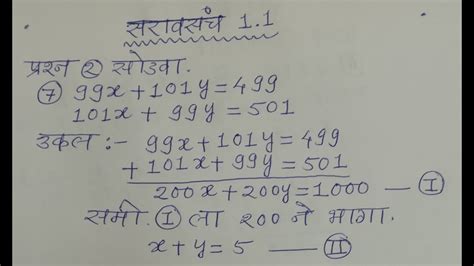 सरावसंच 1.1
प्रश्न ② सोडवा.
⑦ 99x + 101y = 499
101x + 99y = 501
उकल :- 99x + 101y = 499
+ 101x + 99y = 501
200x + 200y = 1000 — Ⓘ
समी. Ⓘ ला 200 ने भागा.
x + y = 5 — Ⅱ